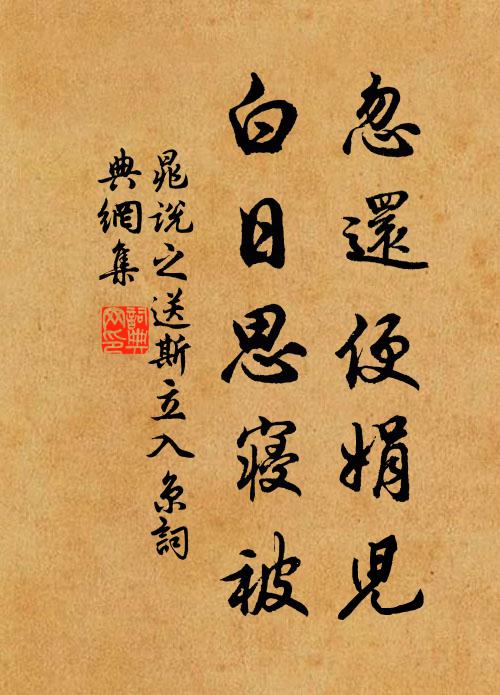 忽還便娟兒
白日思寢被
晁說之送斯立入京詞
典網集
詞典網印